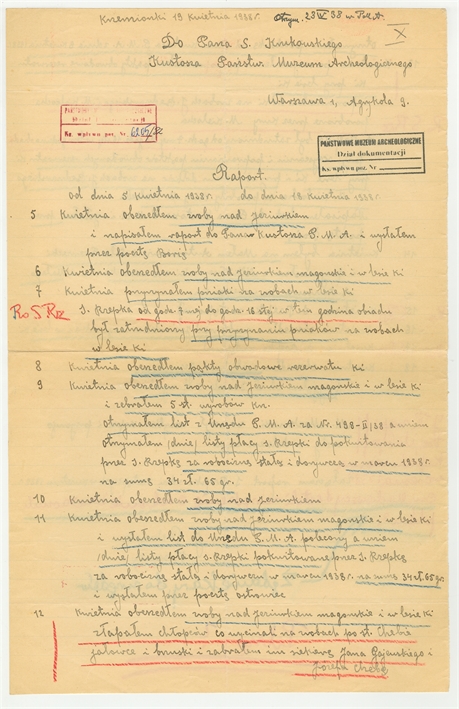 Krzemionki 19 Kwietnia 1938r. otrzym. 23 IV 38
X
Do Pana S. Krukowskiego
Kustosza Państw. Muzeum Archeologicznego
Warszawa 1, Agrykola 9.
Ks. wpływu poz. Nr.
PAŃSTWOWE MUZEUM ARCHEOLOGICZNE
Dział dokumentacji
Ks. wpływu poz. Nr.
Raport.
od dnia 5 Kwietnia 1938r. do dnia 18 Kwietnia 1938r.
5 Kwietnia obeszedłem zroby nad jeziurkiem
i napisałem raport do Pana Kustosza P.M.A. i wysłałem
przez pocztę Borja
6 Kwietnia obeszedłem zroby nad jeziurkiem magonskie i w lesie Ki
7 Kwietnia przyrzynałem pniaki na zrobach w lesie Ki
J. Rzepka od godz. 7 mej do godz. 16 stej w tem godzina obiadu
był zatrudniony przy przyrzynaniu pniaków na zrobach
w lesie Ki
8 Kwietnia obeszedłem pąkty obwodowe rezerwatu Ki
9 Kwietnia obeszedłem zroby nad jeziurkiem magonskie i w lesie Ki
i zebrałem 5 st. wyrobów Krz.
otrzymałem list z Urzędu P.M.A. za Nr. 498-II/38 a w niem
otrzymałem 1 dniej listy płacy J. Rzepki do pokwitowania
przez J. Rzepkę za robociznę stałą i dorywczą w marcu 1938r.
na sumę 34 zł. 65 gr.
10 Kwietnia obeszedłem zroby nad jeziurkiem
11 Kwietnia obeszedłem zroby nad jeziurkiem magonskie i w lesie Ki
i wysłałem list do Urzędu P.M.A. polecony a w niem
1 dniej listy płacy J. Rzepki pokwitowane przez J. Rzepkę
za robociznę stałą i dorywczą w marcu 1938r. na sumę 34 zł. 65 gr
i wysłałem przez pocztę ostrowiec
12 Kwietnia obeszedłem zroby nad jeziurkiem magonskie i w lesie Ki
złapałem chłopców co wycinali na zrobach po st. Chebie
jałowce i brzuski i zabrałem im siekierę Jana Gajewskiego i
Józefa Cheba